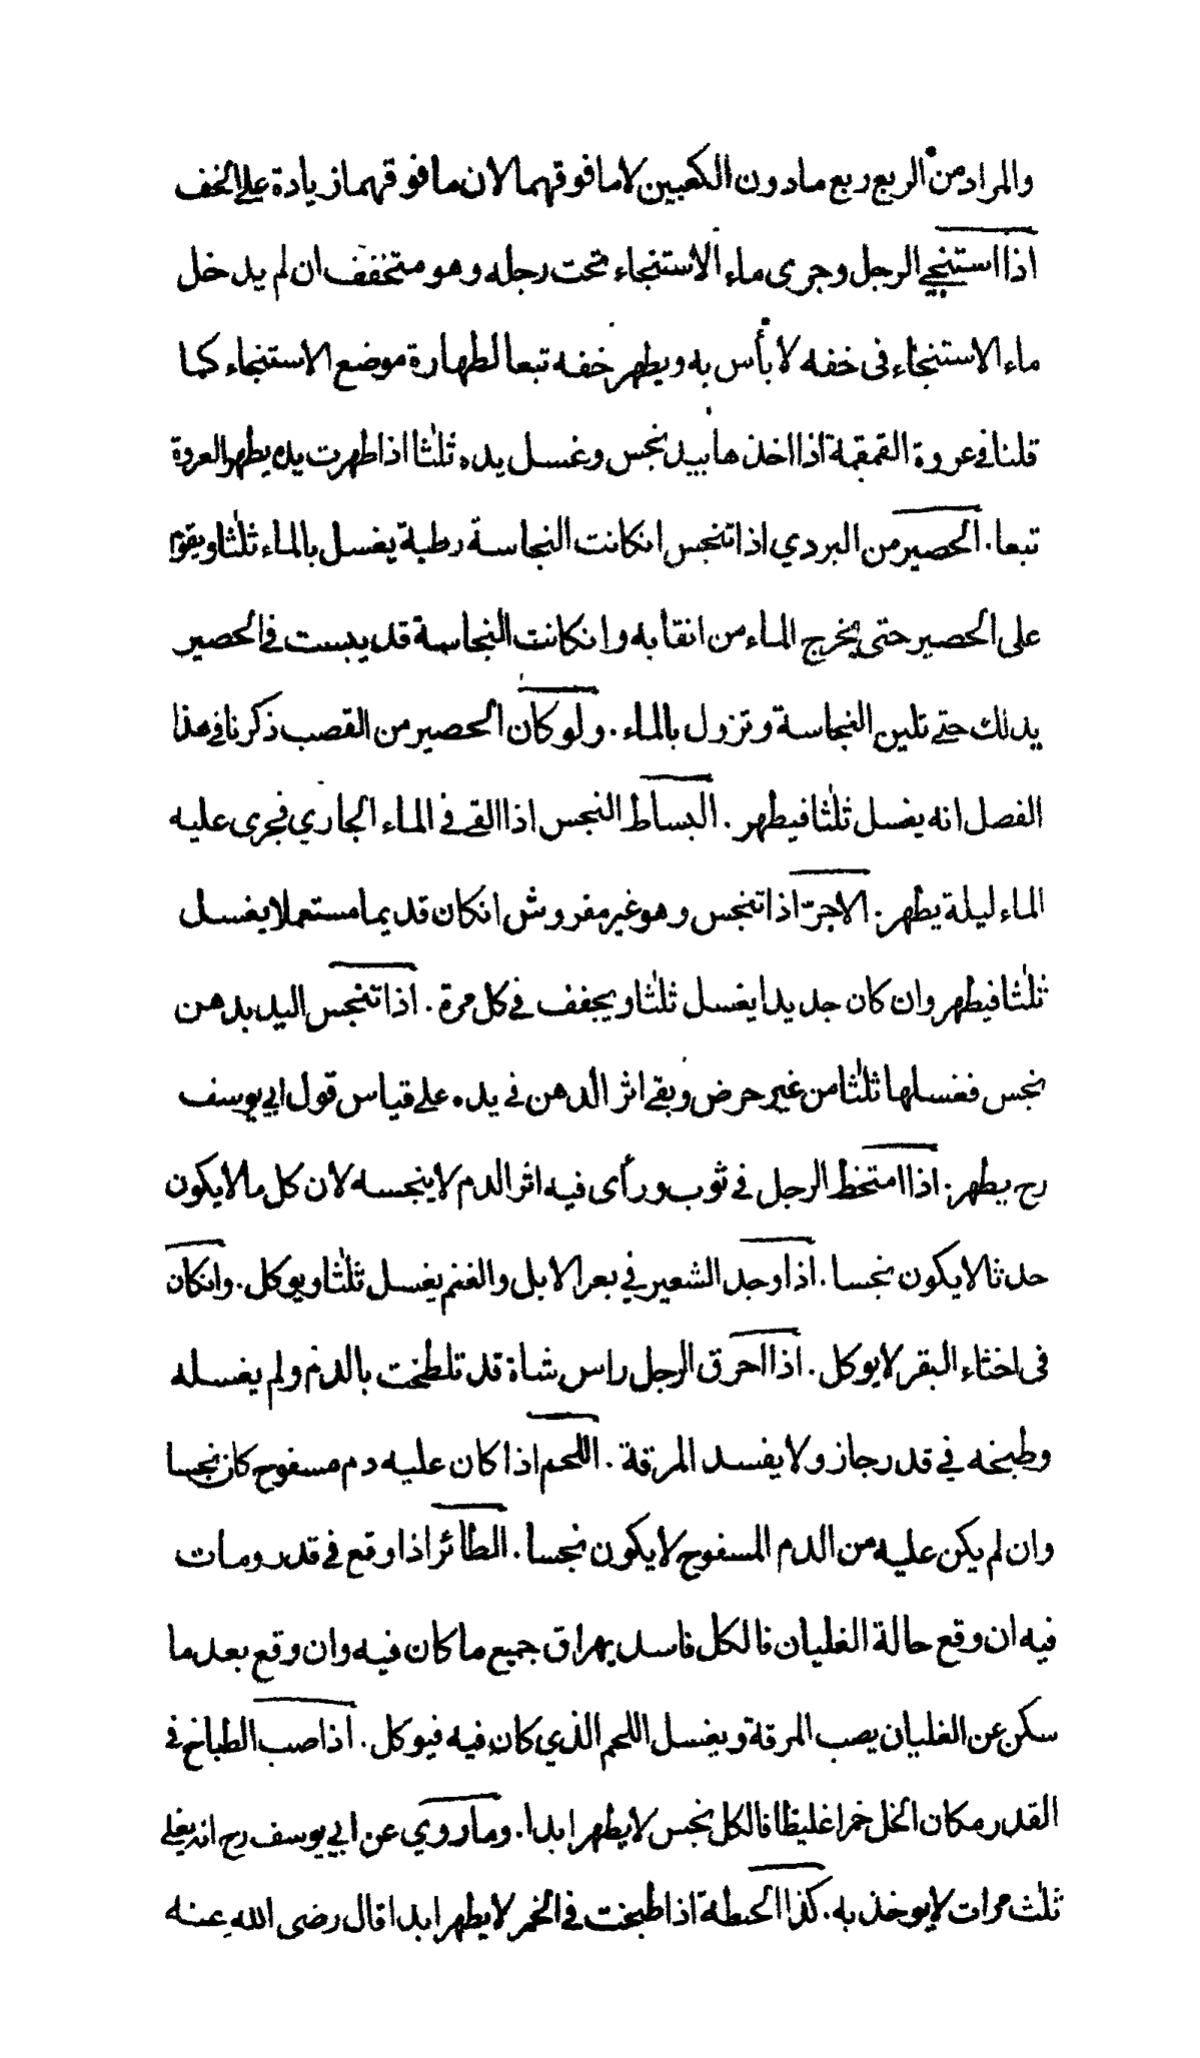 والمراد من الربع ربع ما دون الكعبين لا ما فوقهما لان ما فوقهما زيادة على الخف
اذا استنجى الرجل وجرى ماء الاستنجاء تحت رجله وهو متخفف ان لم يدخل
ماء الاستنجاء فى خفه لا بأس به ويطهر خفه تبعا لطهارة موضع الاستنجاء كما
قلنا في عروة القمقمة اذا اخذها بيد نجس وغسل يده ثلثا اذا طهرت يده يطهر العروة
تبعا. الحصير من البردي اذا تنجس انكانت النجاسة رطبة يغسل بالماء ثلثا ويقوم
على الحصير حتى يخرج الماء من انقابه وانكانت النجاسة قد يبست في الحصير
يدلك حتى تلين النجاسة وتزول بالماء. ولو كان الحصير من القصب ذكرنا في هذا
الفصل انه يغسل ثلثا فيطهر. البساط النجس اذا القي في الماء الجاري فجرى عليه
الماء ليلة يطهر. الاجرّ اذا تنجس وهو غير مفروش انكان قديما مستعملا يغسل
ثلثا فيطهر وان كان جديدا يغسل ثلثا ويجفف في كل مرة. اذا تنجس اليد بدهن
نجس فغسلها ثلثا من غير حرض وبقي اثر الدهن في يده على قياس قول ابي يوسف
رح يطهر. اذا امتخط الرجل في ثوب ورأى فيه اثر الدم لا ينجسه لان كل ما لا يكون
حدثا لا يكون نجسا. اذا وجد الشعير في بعر الابل والغنم يغسل ثلثا ويوكل. وانكان
فى اخثاء البقر لا يوكل. اذا احرق الرجل راس شاة قد تلطخت بالدم ولم يغسله
وطبخه في قدر جاز ولا يفسد المرقة. اللحم اذا كان عليه دم مسفوح كان نجسا
وان لم يكن عليه من الدم المسفوح لا يكون نجسا. الطائر اذا وقع في قدر ومات
فيه ان وقع حالة الغليان فالكل فاسد يهراق جميع ما كان فيه وان وقع بعد ما
سكن عن الغليان يصب المرقة ويغسل اللحم الذي كان فيه فيوكل. اذا صب الطباخ في
القدر مكان الخل خمرا غليظا فالكل نجس لا يطهر ابدا. وما روي عن ابي يوسف رح انه يغلي
ثلث مرات لا يوخذ به. كذا الحنطة اذا طبخت في الخمر لا يطهر ابدا قال رضى الله عنه